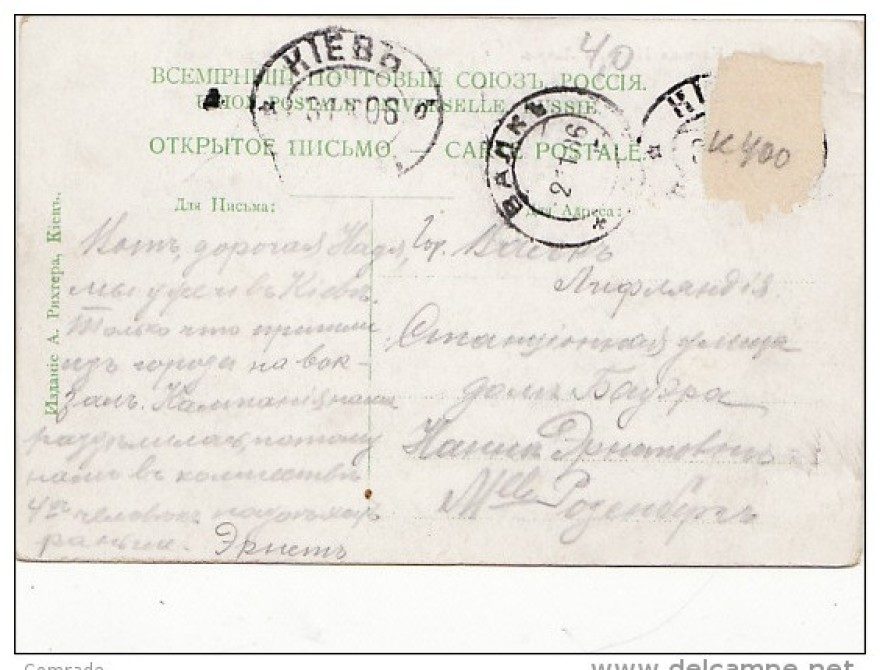 40
КІЕВЪ
ВСЕМІРНЫЙ ПОЧТОВЫЙ СОЮЗЪ. РОССІЯ.
UNION POSTALE UNIVERSELLE. RUSSIE.
ОТКРЫТОЕ ПИСЬМО. — CARTE POSTALE.
ВАЛКЪ
КІ
К 400
Для Письма:
Для Адреса:
Изданіе А. Рихтера, Кіевъ.
Вотъ, дорогая Надя,
мы уже и въ Кіевѣ.
Только что пришли
изъ города на вок-
залъ. Кампанія наша
раздѣлилась, потому
въ количествѣ
4хъ человѣкъ
раньше. Эрнстъ
Гор. Валкъ
Лифляндія
Станціонная улица
домъ Бауэра
Mlle Розенбергъ
Comrade
www.delcampe.net